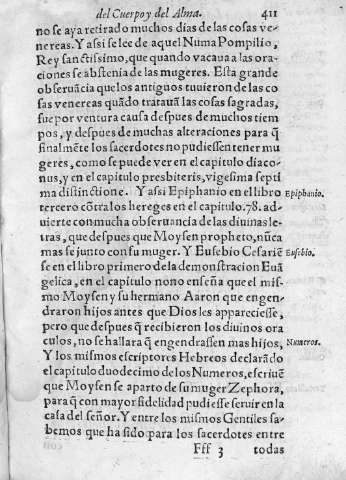 del Cuerpo y del Alma. 411
no se aya retirado muchos dias de las cosas ve-
nereas. Y assi se lee de aquel Numa Pompilio,
Rey sanctissimo, que quando vacaua a las ora-
ciones se abstenia de las mugeres. Esta grande
obseruācia que los antiguos tuuieron de las co
sas venereas quādo tratauā las cosas sagradas,
fue por ventura causa despues de muchos tiem
pos, y despues de muchas alteraciones para q̄
finalmēte los sacerdotes no pudiessen tener mu
geres, como se puede ver en el capitulo diaco-
nus, y en el capitulo presbiteris, vigesima septi
ma distinctione. Y assi Epiphanio en el libro
Epiphanio.
tercero cōtra los hereges en el capitulo.78. ad-
uierte con mucha obseruancia de las diuinas le-
tras, que despues que Moysen propheto, nūca
mas se junto con su muger. Y Eusebio Cesariē
Eusebio.
se en el libro primero de la demonstracion Euā
gelica, en el capitulo nono enseña que el mis-
mo Moysen y su hermano Aaron que engen-
draron hijos antes que Dios les appareciesse,
pero que despues q̄ recibieron los diuinos ora
culos, no se hallara q̄ engendrassen mas hijos,
Numeros.
Y los mismos escriptores Hebreos declarādo
el capitulo duodecimo de los Numeros, escriuē
que Moysen se aparto de su muger Zephora,
para q̄ con mayor fidelidad pudiesse seruir en la
casa del señor. Y entre los mismos Gentiles sa-
bemos que ha sido para los sacerdotes entre
Fff 3 todas